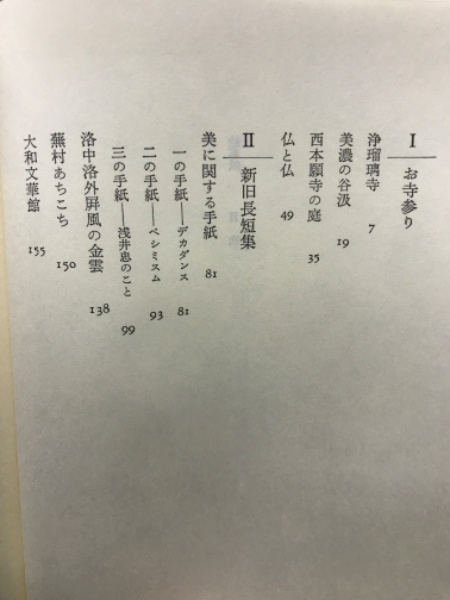 I お寺参り
浄瑠璃寺 7
美濃の谷汲 19
西本願寺の庭 35
仏と仏 49
II 新旧長短集
美に関する手紙 81
一の手紙――デカダンス 81
二の手紙――ペシミスム 93
三の手紙――浅井忠のこと 99
洛中洛外屏風の金雲 138
蕪村あちこち 150
大和文華館 155